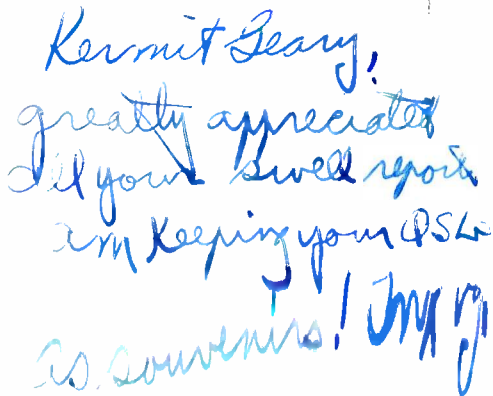 Kermit Geary!
greatly appreciated
all your swell report
am keeping your QSLs
as souvenirs!